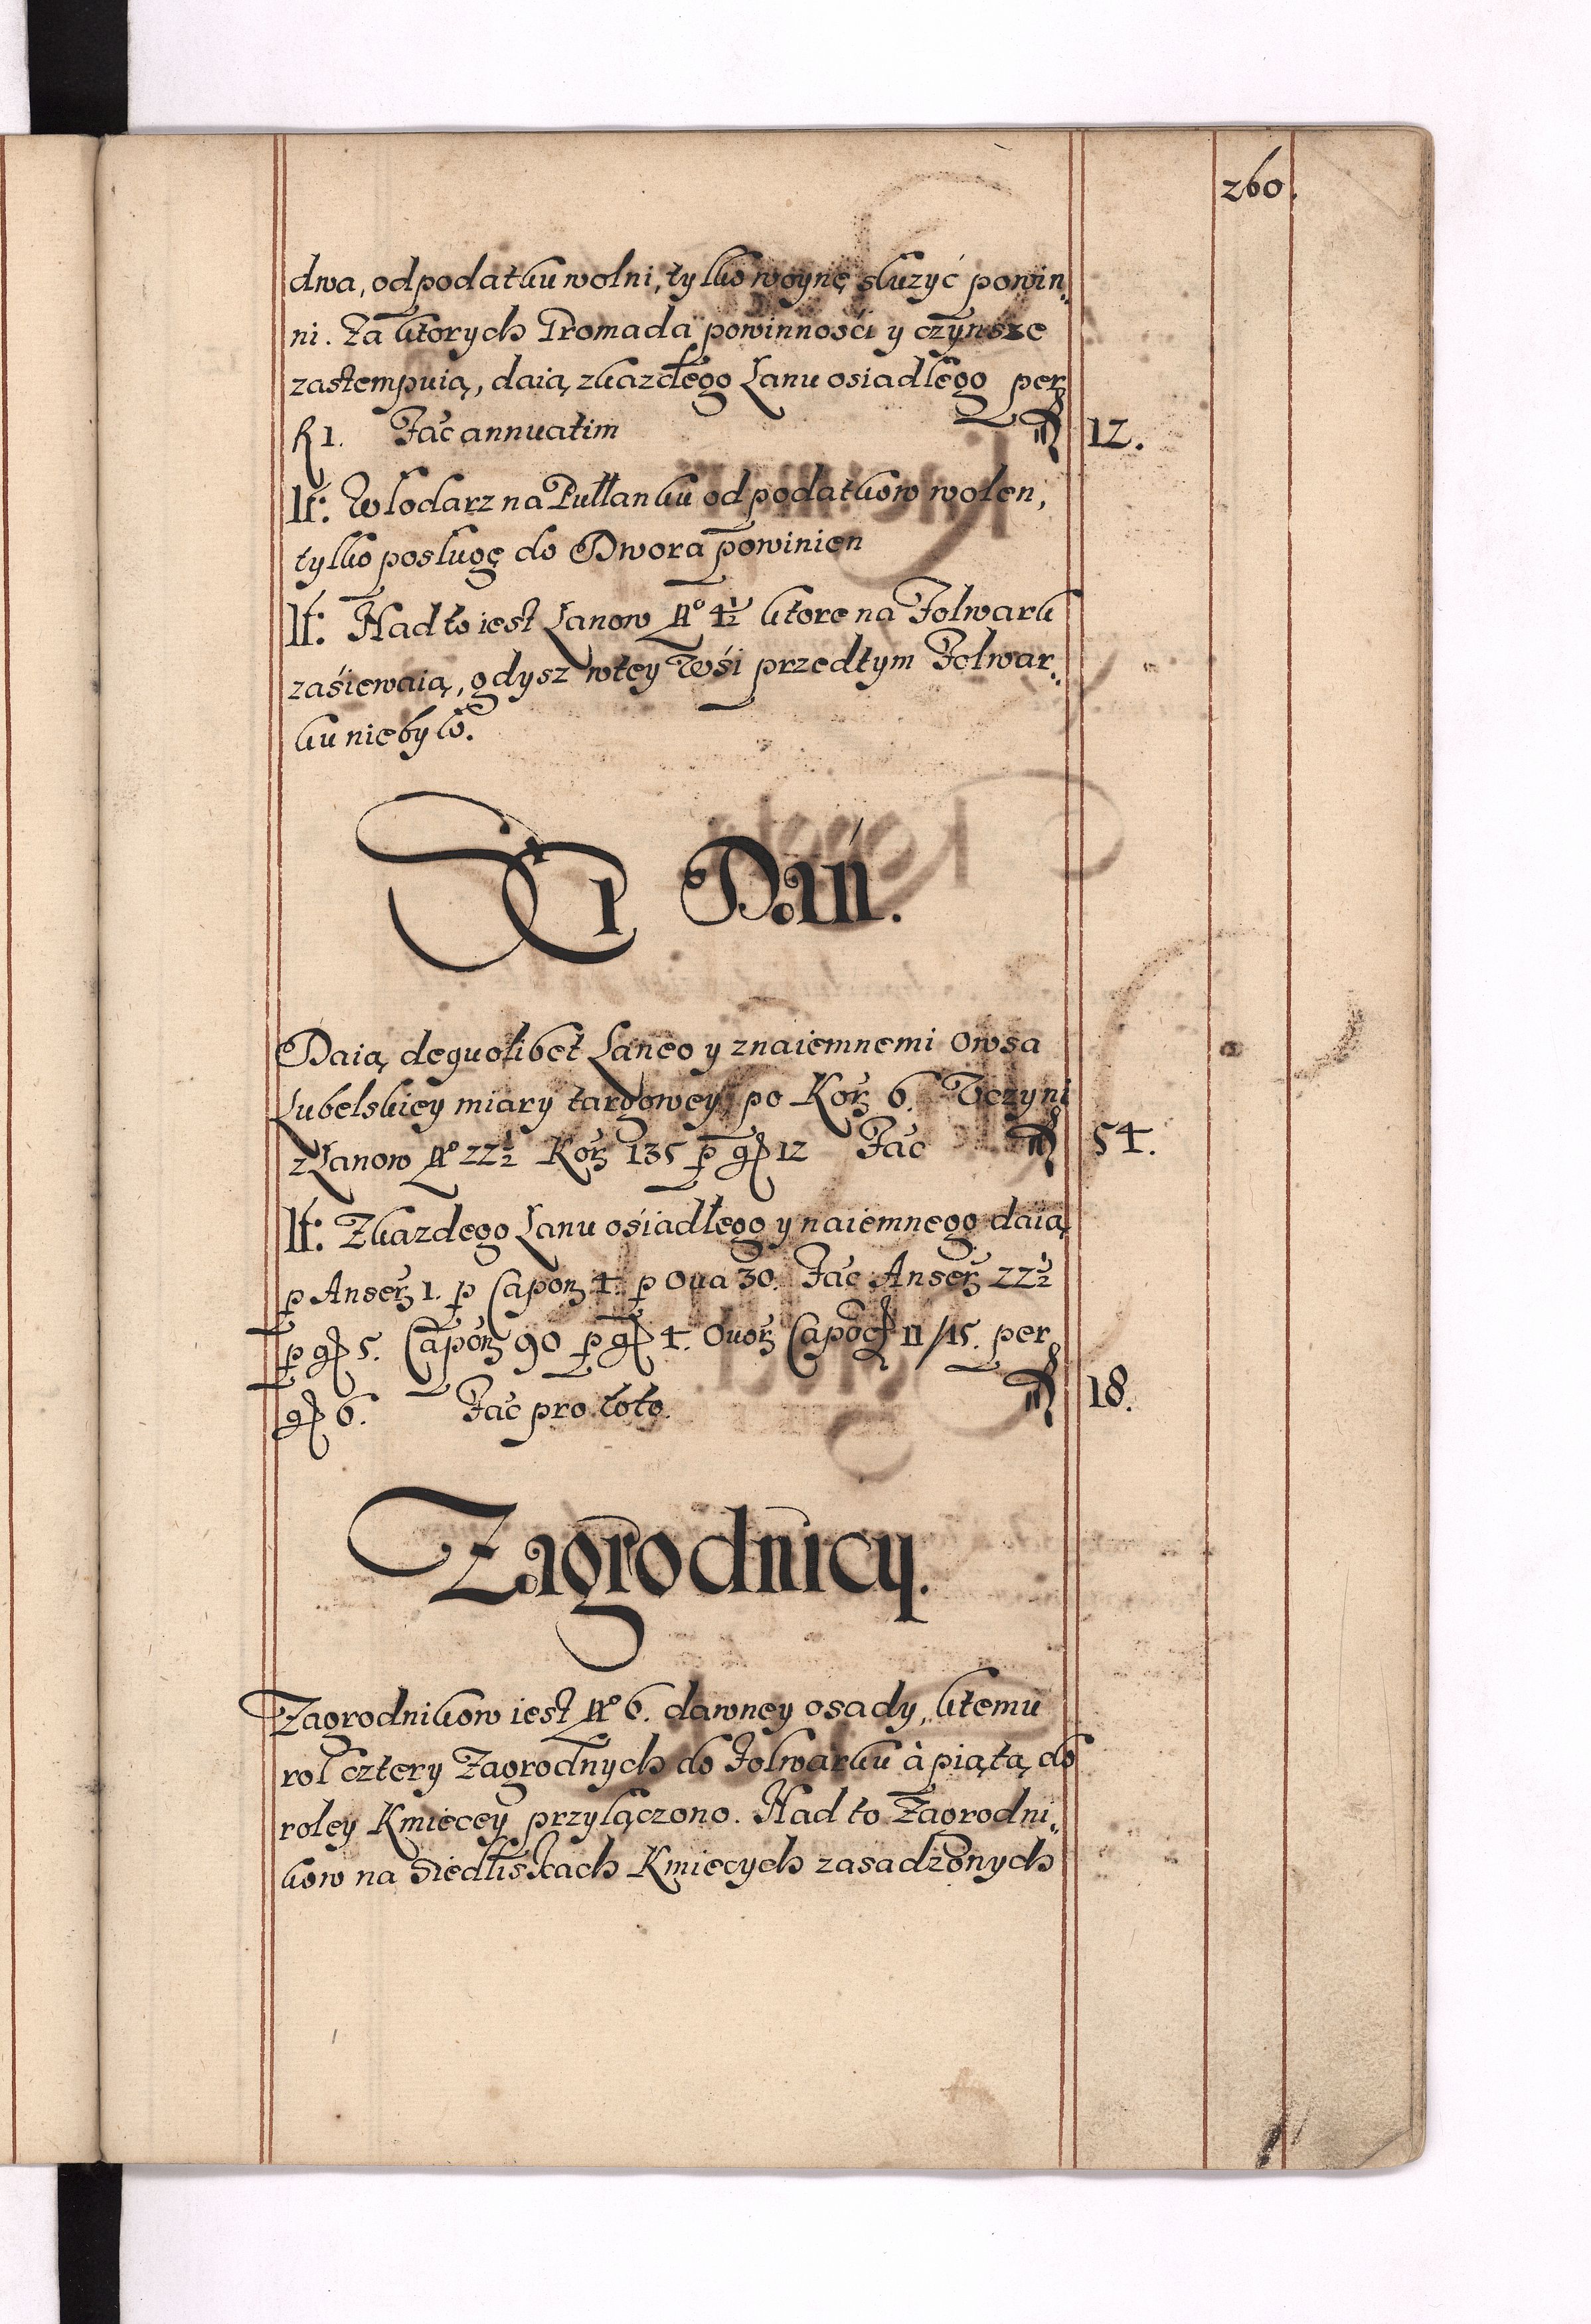 260.
dwa, od podatku wolni, tylko woynę słuzyć powin„
ni. Za ktorych Gromada powinności y czynsze
zastempuią, daią zkazdego Łanu osiadłego per
f 1. Fac̃ annuatim f 12.
It: Włodarz na Pułłanku od podatkow wolen,
tylko posługę do Dwora powinien
It: Nad to iest Łanow N° 4½ ktore na Folwark
zaśiewaią, gdysz wtey Wśi przedtym Folwar„
ku niebyło.
Dań.
Daią dequolibet Laneo y znaiemnemi Owsa
Lubelskiey miary targowey po Korz 6. Uczyni
z Łanow N° 22½ Korz 135 p̄ gr 12 Fac̃ f 54.
It: Zkazdego Łanu ośiadłego y naiemnego daią
p Anser 1. p Capon 4. p Oua 30. Fac̃ Anser 22½
p gr 5. Capon 90 p gr 4. Ouor Capog 11/15. per
gr 6. Fac̃ pro toto. f 18.
Zagrodnicy.
Zagrodnikow iest N° 6. dawney osady, ktemu
rol cztery Zagrodnych do Folwarku à piątą do
roley Kmiecey przyłączono. Nad to Zagrodni„
kow na Siedliskach Kmiecych zasadzonych